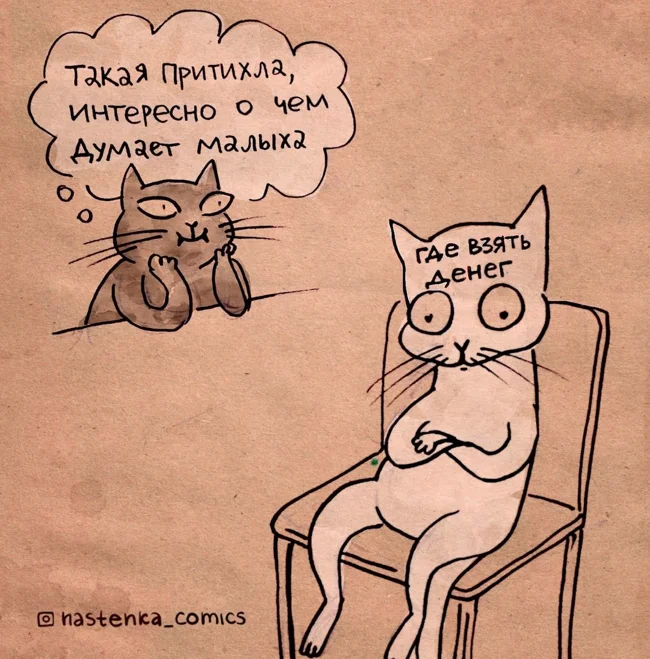 Такая притихла,
интересно о чем
думает малыха
где взять
денег
nastenka_comics